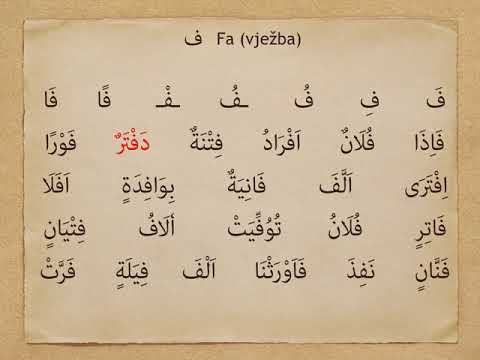 ف Fa (vježba)
فَ فِ فُ ـفُ ـفْـ فًا فَا
فَاِذَا فُلَانٌ اَفْرَادُ فِتْنَةٌ دَفْتَرٌ فَوْرًا
اِفْتَرَى اَلَّفَ فَانِيَةٌ بِوَافِدَةٍ اَفَلَا
فَاتِرٍ فُلَانُ تُوُفِّيَتْ أَلَافُ فِتْيَانٍ
فَنَّانٍ نَفِذَ فَاَوْرَثْنَا اَلْفَ فِيلَةٍ فَرَّتْ